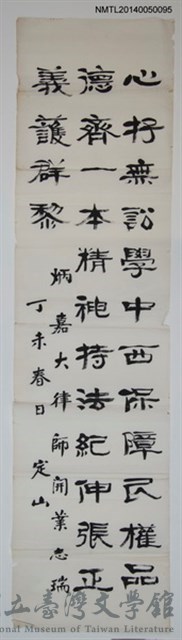 NMTL20140050095
心抒無訟學中西保障民權品
德齊一本精神持法紀伸張正
義護群黎
炳嘉大律師開業志瑞
丁未春日 定山
立臺灣文學館
National Museum of Taiwan Literature